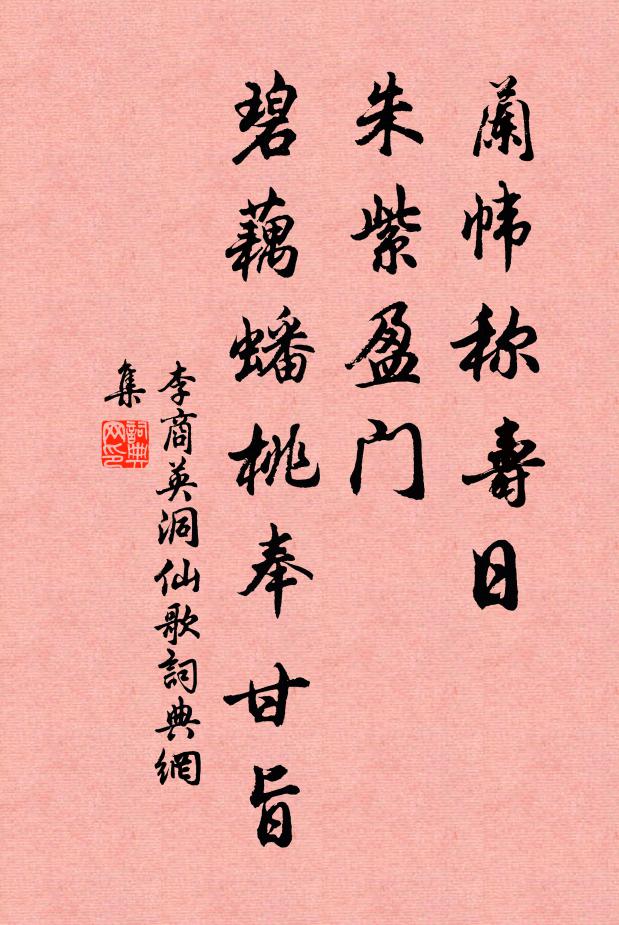 蘭帏称壽日
朱紫盈门
碧藕蟠桃奉甘旨
李商英洞仙歌詞典網
集
詞典
网印